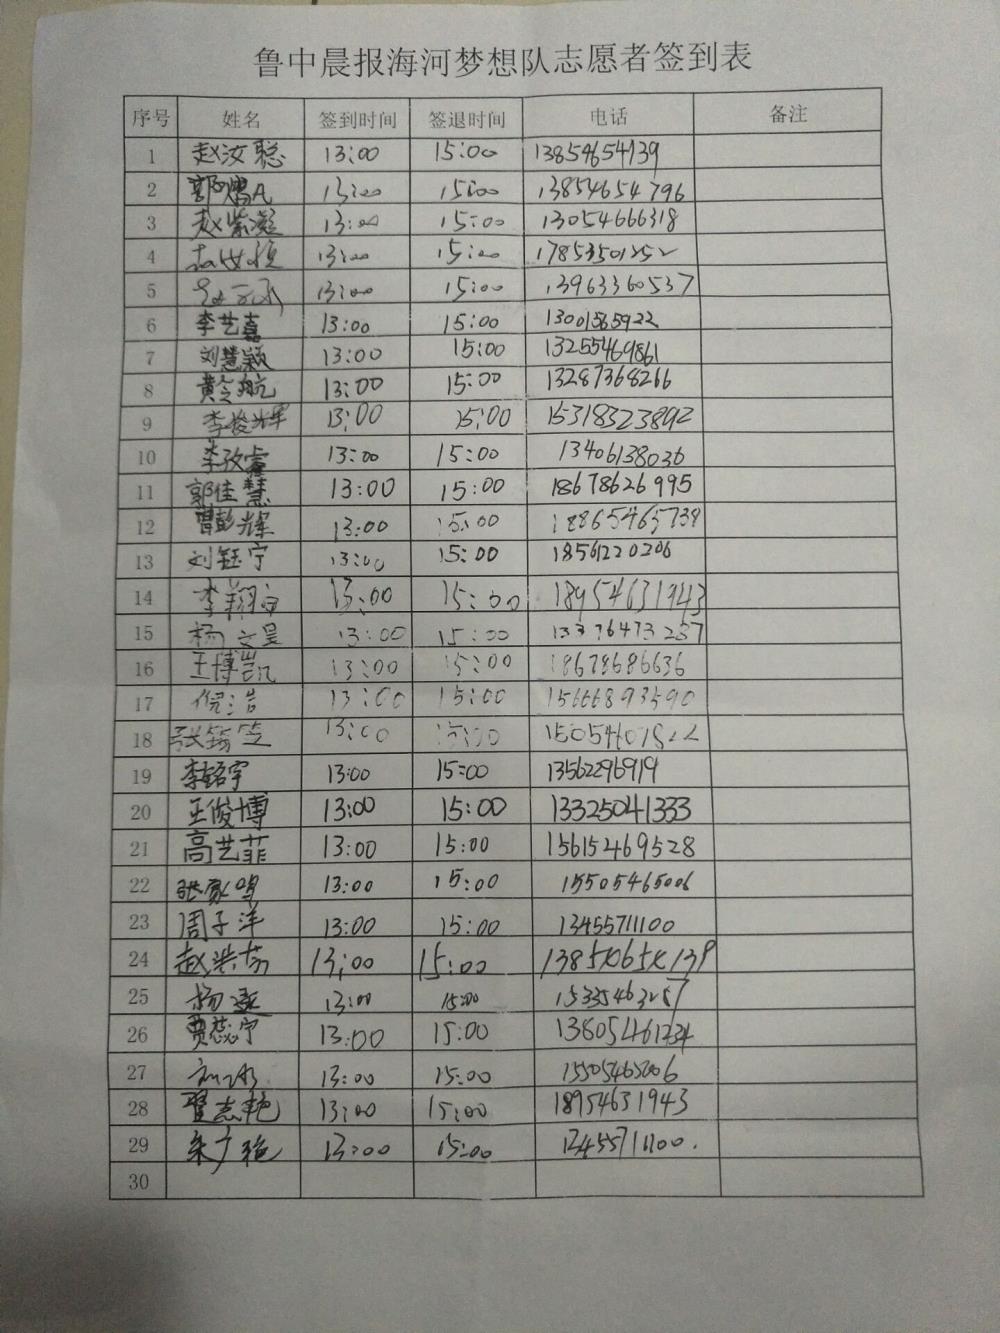 鲁中晨报海河梦想队志愿者签到表
序号 姓名 签到时间 签退时间 电话 备注
1 赵汝聪 13:00 15:00 13854654139
2 郭 13:00 15:00 13854654796
3 赵紫凝 13:00 15:00 13054666318
4 13:00 15:00
5 13:00 15:00 13963360537
6 李艺嘉 13:00 15:00 13001585922
7 刘慧颖 13:00 15:00 13255469861
8 黄令航 13:00 15:00 13287368266
9 李俊辉 13:00 15:00 15318323892
10 李孜睿 13:00 15:00 13406138036
11 郭佳慧 13:00 15:00 18678626995
12 曹彭辉 13:00 15:00 18865465739
13 刘钰宁 13:00 15:00 18561220206
14 李翔 13:00 15:00 18954631943
15 杨文昊 13:00 15:00 13376473257
16 王博凯 13:00 15:00 18678686636
17 倪洁 13:00 15:00 15666893590
18 张 13:00 15:00
19 李铭宇 13:00 15:00 13562296919
20 王俊博 13:00 15:00 13325041333
21 高艺菲 13:00 15:00 15615469528
22 张家鸣 13:00 15:00 15505465006
23 周子洋 13:00 15:00 13455711100
24 赵 13:00 15:00
25 杨 13:00 15:00 15335463257
26 贾蕊宁 13:00 15:00
27 13:00 15:00 15505465006
28 翟志艳 13:00 15:00 18954631943
29 朱广艳 13:00 15:00 13455711100.
30